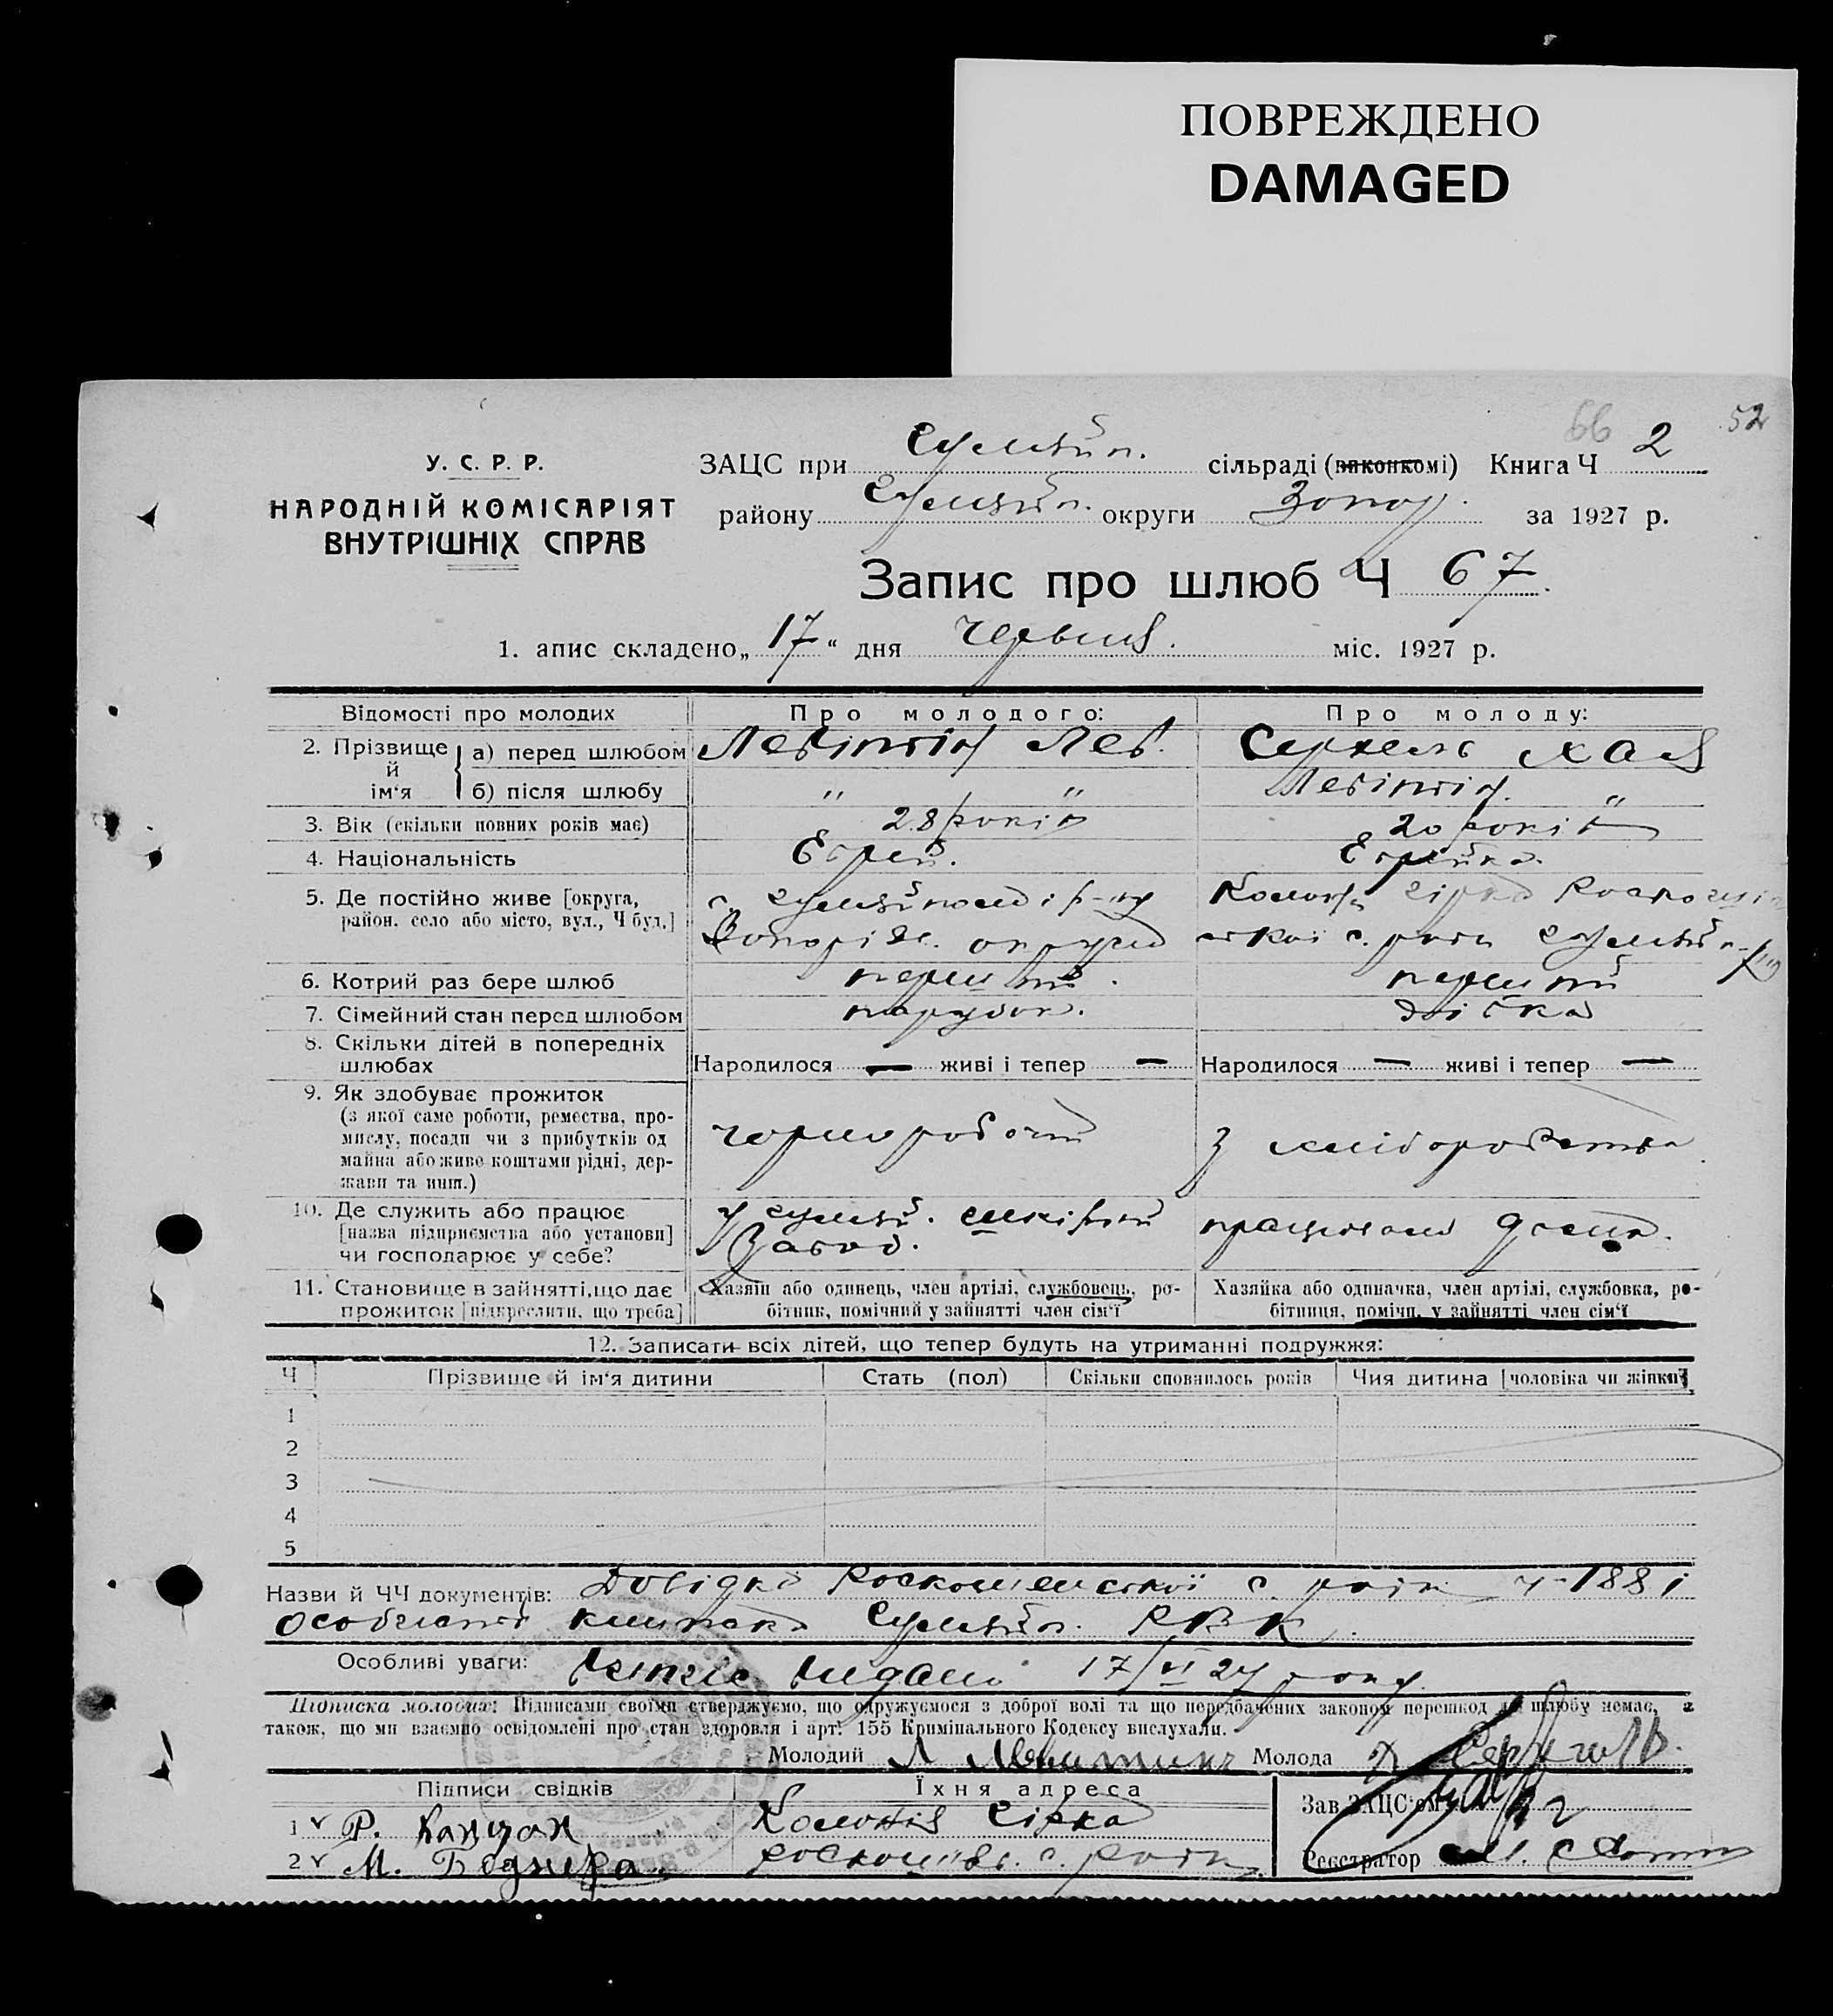 ПОВРЕЖДЕНО
DAMAGED
66 2 52
У. С. Р. Р.
НАРОДНІЙ КОМІСАРІЯТ
ВНУТРІШНІХ СПРАВ
ЗАЦС при Гуляйп. сільраді (виконкомі) Книга Ч 2
району Гуляйп. округи Запор. за 1927 р.
Запис про шлюб Ч 67
1. апис складено „ 17 “ дня червня. міс. 1927 р.
Відомості про молодих Про молодого: Про молоду:
2. Прізвище й ім‘я
а) перед шлюбом Лев Хая
б) після шлюбу " " "
3. Вік (скільки повних років має) 28 років 20 років
4. Національність Еврей. Еврейка
5. Де постійно живе [округа, район. село або місто, вул., Ч буд.]
6. Котрий раз бере шлюб перший. перший
7. Сімейний стан перед шлюбом парубок. дівка
8. Скільки дітей в попередніх шлюбах
Народилося — живі і тепер — Народилося — живі і тепер —
9. Як здобуває прожиток
(з якої саме роботи, ремества, про-
мислу, посади чи з прибутків од
майна або живе коштами рідні, дер-
жави та инш.)
чорноробочий з хліборобства
10. Де служить або працює
[назва підприємства або установи]
чи господарює у себе?
у гуляй. шкіряний
Завод.
працювала дома.
11. Становище в зайнятті, що дає
прожиток [підкреслити, що треба]
Хазяїн або одинець, член артілі, службовець, ро-
бітник, помічний у зайнятті член сім‘ї
Хазяйка або одиначка, член артілі, службовка, ро-
бітниця, помічн. у зайнятті член сім‘ї
12. Записати всіх дітей, що тепер будуть на утриманні подружжя:
Ч Прізвище й ім‘я дитини Стать (пол) Скільки сповнилось років Чия дитина [чоловіка чи жінки]
1
2
3
4
5
Назви й ЧЧ документів: Довідка с. ради ч-1881
особиста книжка Гуляйп. РВК.
Особливі уваги: видано 17/VI 27 року
Підписка молодих: Підписами своїми стверджуємо, що одружуємося з доброї волі та що передбачених законом перешкод до шлюбу немає, а
також, що ми взаємно освідомлені про стан здоровля і арт. 155 Кримінального Кодексу вислухали.
Молодий Л Молода
Підписи свідків Їхня адреса
1 Р. Колонія
2 М. с. ради
Зав ЗАЦС‘ом
Реєстратор